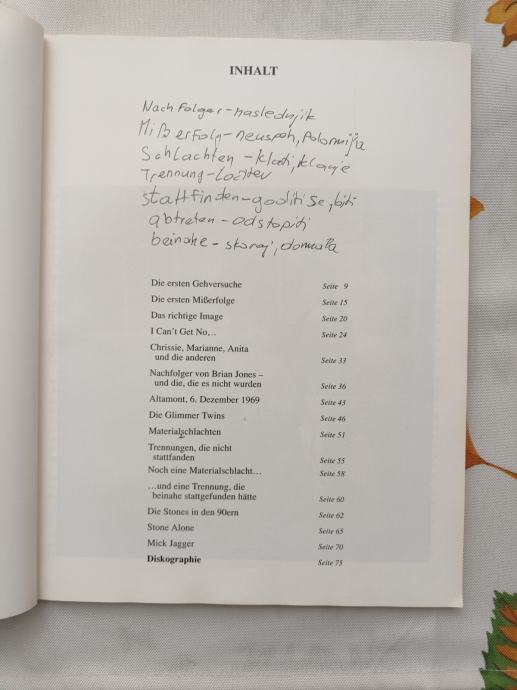 INHALT
Nachfolger - naslednjik
Mißerfolg - neuspeh, polomija
Schlachten - klati, klanje
Trennung - ločitev
stattfinden - goditi se, biti
abtreten - odstopiti
beinahe - skoraj, domala
Die ersten Gehversuche Seite 9
Die ersten Mißerfolge Seite 15
Das richtige Image Seite 20
I Can't Get No... Seite 24
Chrissie, Marianne, Anita
und die anderen Seite 33
Nachfolger von Brian Jones –
und die, die es nicht wurden Seite 36
Altamont, 6. Dezember 1969 Seite 43
Die Glimmer Twins Seite 46
Materialschlachten Seite 51
Trennungen, die nicht
stattfanden Seite 55
Noch eine Materialschlacht... Seite 58
...und eine Trennung, die
beinahe stattgefunden hätte Seite 60
Die Stones in den 90ern Seite 62
Stone Alone Seite 65
Mick Jagger Seite 70
Diskographie Seite 75